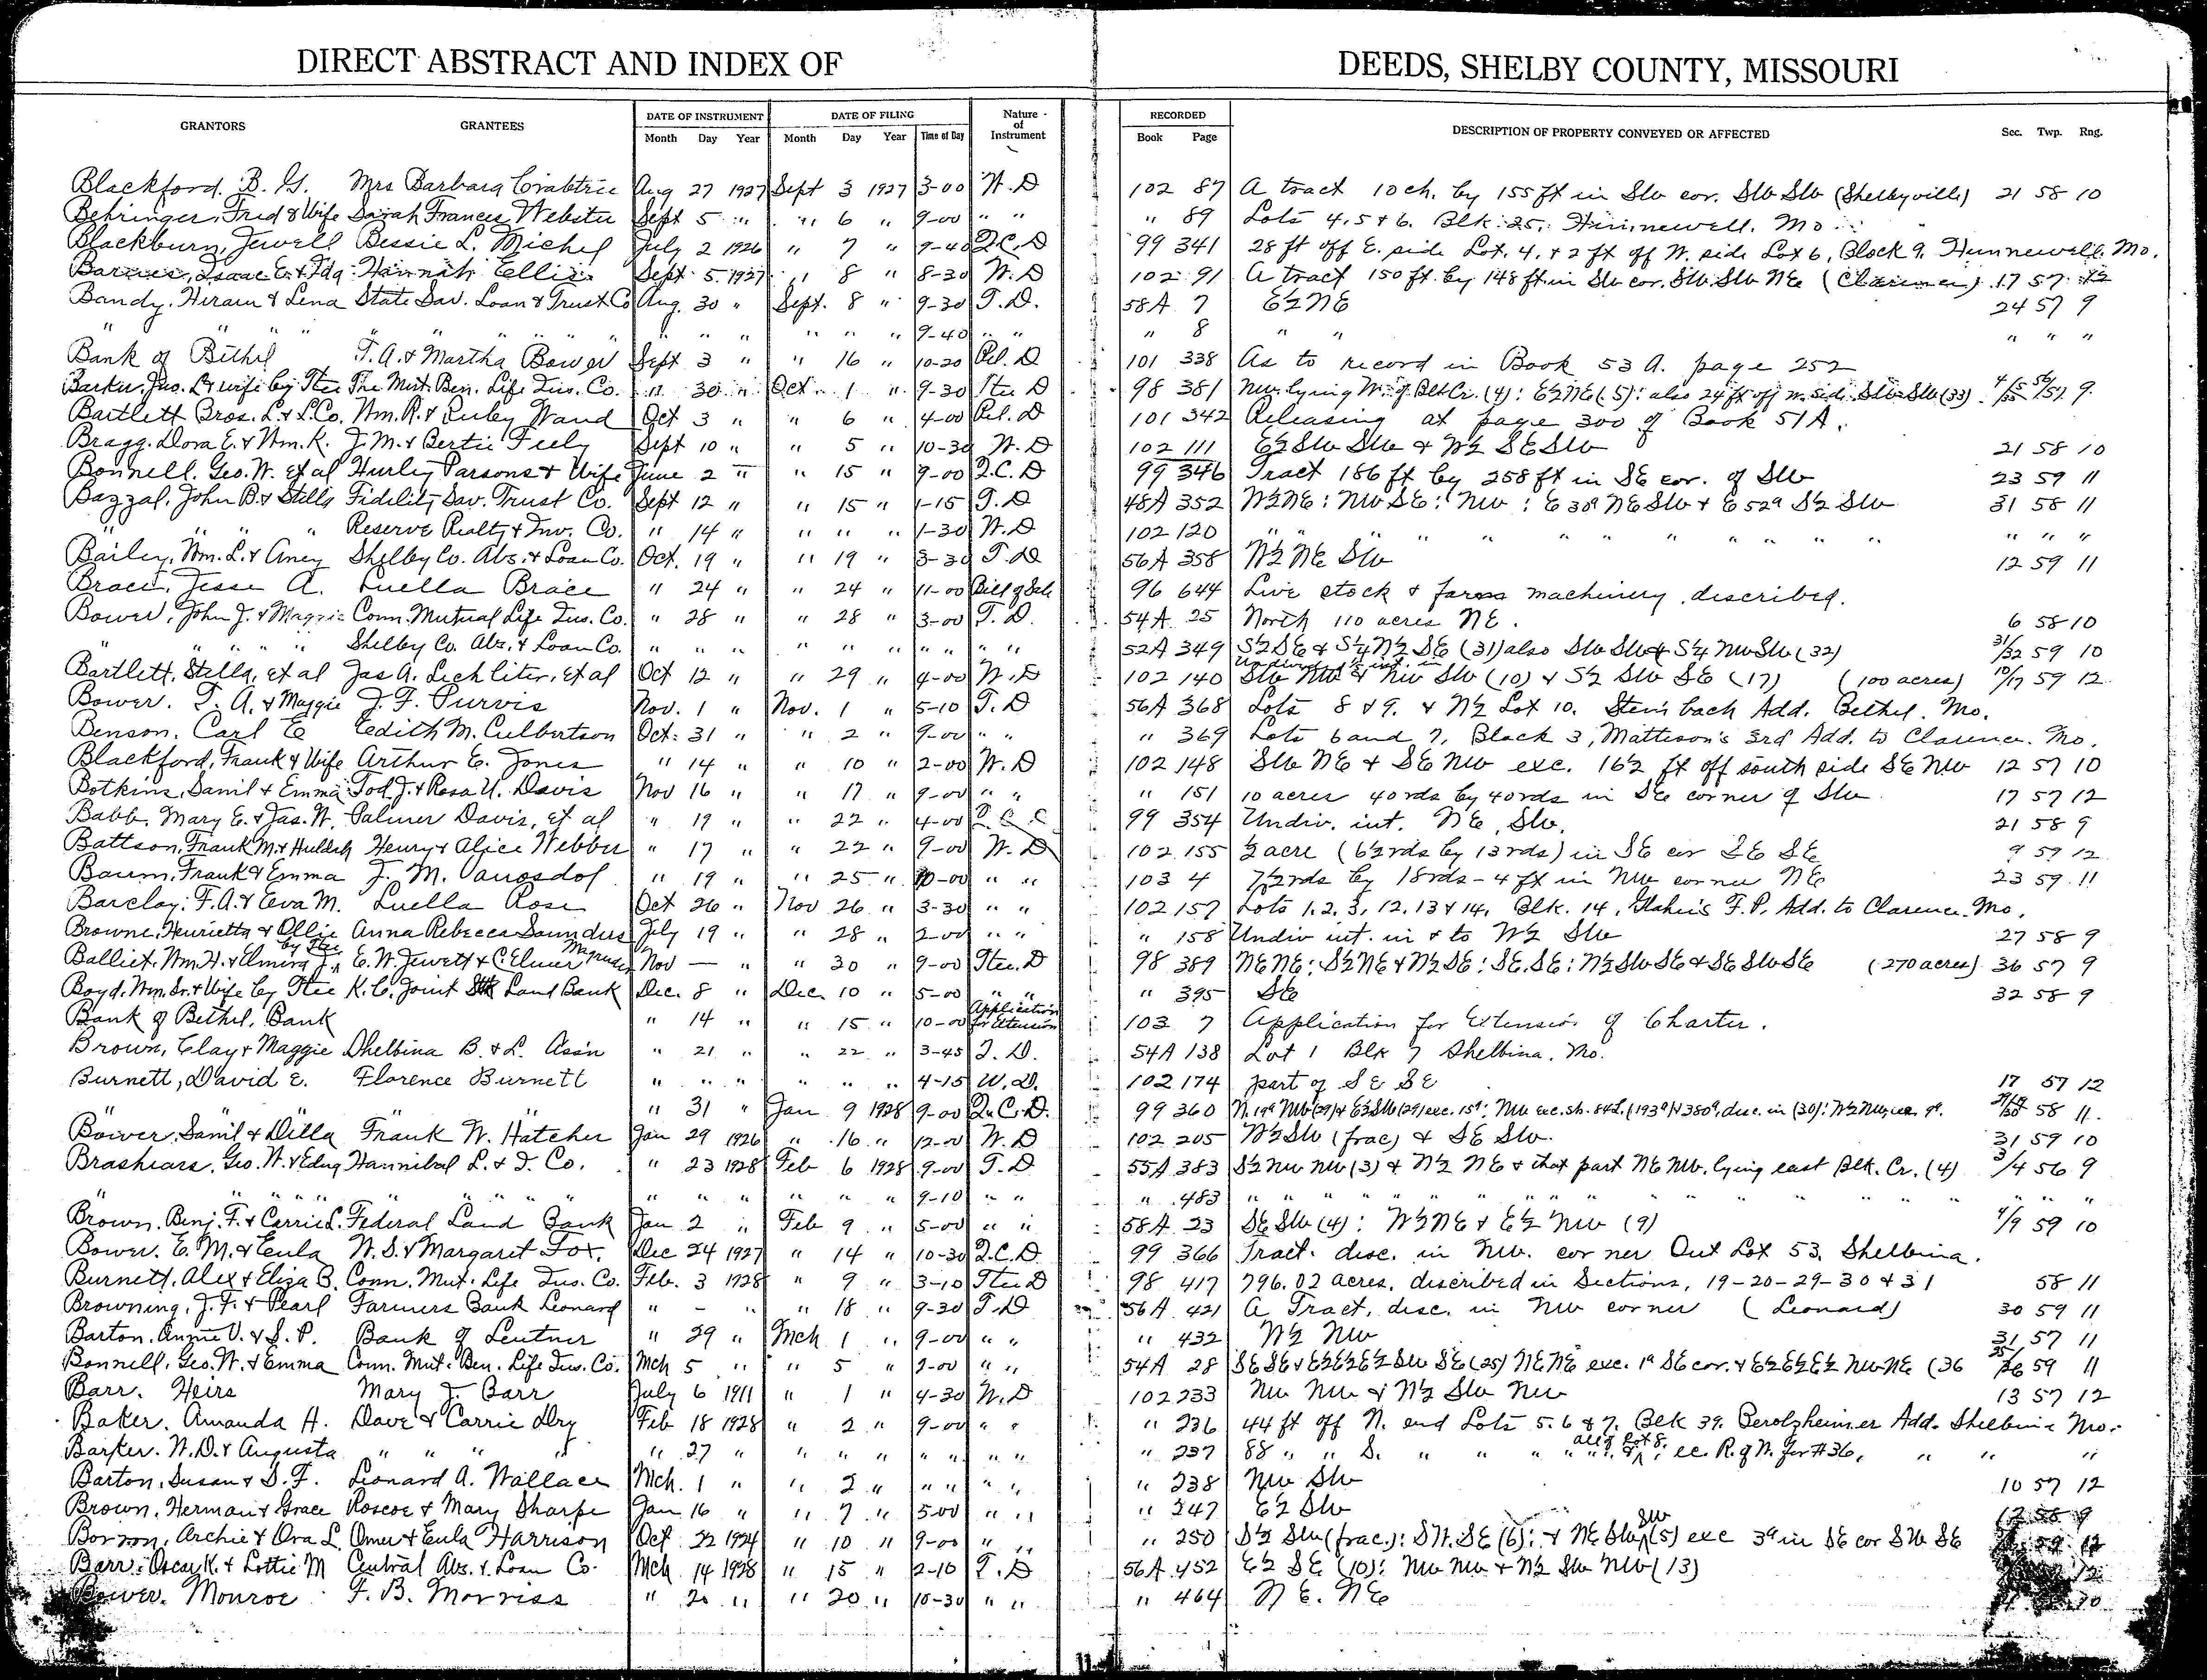 DIRECT ABSTRACT AND INDEX OF DEEDS, SHELBY COUNTY, MISSOURI
GRANTORS GRANTEES DATE OF INSTRUMENT DATE OF FILING Nature of Instrument RECORDED DESCRIPTION OF PROPERTY CONVEYED OR AFFECTED Sec. Twp. Rng.
Month Day Year Month Day Year Time of Day Book Page
Blackford, B. G. Mrs Barbara Crabtree Aug 27 1927 Sept 3 1927 3-00 W.D 102 87 A tract 10 ch. by 155 ft in SW cor. SW SW (Shelbyville) 21 58 10
Behringer, Fred & Wife Sarah Frances Webster Sept 5 " " 6 " 9-00 " " " 89 Lots 4, 5 & 6. Blk. 25, Hunnewell, Mo.
Blackburn, Jewell Bessie L. Michel July 2 1926 " 7 " 9-40 Q.C.D 99 341 28 ft off E. side Lot 4, & 2 ft off W. side Lot 6, Block 9, Hunnewell, Mo.
Barnes, Isaac E. & Ida Hannah Ellis Sept 5 1927 " 8 " 8-30 W.D 102 91 A tract 150 ft. by 148 ft. in SW cor. SW SW NE (Clarence) 17 57 12
Bandy, Hiram & Lena State Sav. Loan & Trust Co Aug. 30 " Sept. 8 " 9-30 T.D. 58A 7 E½ NE 24 57 9
" " " " " " " " " " " " " " " 9-40 " " " 8 " " " " "
Bank of Bethel T. A. & Martha Bower Sept 3 " " 16 " 10-20 Rel. D 101 338 As to record in Book 53 A. page 252
Barker, Jno. L & wife by Ttee The Mut. Ben. Life Ins. Co. " 30 " Oct 1 " 9-30 Ttee D 98 381 NW lying W. of Blk Cr. (4): E½ NE (5): also 24 ft off W. side SW SW (33) 9
Bartlett Bros. L. & L. Co. Wm. R. & Ruby Wand Oct 3 " " 6 " 4-00 Rel. D 101 342 Releasing at page 300 of Book 51A.
Bragg, Dora E. & Wm. K. J. M. & Bertie Feely Sept 10 " " 5 " 10-30 W.D 102 111 E½ SW SW & W½ SE SW 21 58 10
Bonnell, Geo. W. et al Hurley Parsons & Wife June 2 " " 15 " 9-00 Q.C.D 99 346 Tract 186 ft by 258 ft in SE cor. of SW 23 59 11
Bazzal, John B. & Stella Fidelity Sav. Trust Co. Sept 12 " " 15 " 1-15 T.D 48A 352 W½ NE: NW SE: NW: E 30a NE SW & E 52a S½ SW 31 58 11
" " " " Reserve Realty & Inv. Co. " 14 " " " " 1-30 W.D 102 120 " " " " " " " " " " " " "
Bailey, Wm. L. & Aney Shelby Co. Abs. & Loan Co. Oct. 19 " " 19 " 3-30 T.D 56A 358 W½ NE SW 12 59 11
Brace, Jesse A. Luella Brace " 24 " " 24 " 11-00 Bill of Sale 96 644 Live stock & farm machinery, described.
Bower, John J. & Maggie Conn. Mutual Life Ins. Co. " 28 " " 28 " 3-00 T.D. 54A 25 North 110 acres NE. 6 58 10
" " " " Shelby Co. Abs. & Loan Co. " " " " " " " " " " 52A 349 S½ SE & S¼ N½ SE (31) also SW SW & S¼ NW SW (32) 31/32 59 10
Bartlett, Stella, et al Jas A. Lechliter, et al Oct 12 " " 29 " 4-00 W.D 102 140 Undivided ½ int. in SW NW & NW SW (10) & S½ SW SE (17) (100 acres) 10/17 59 12
Bower, T. A. & Maggie J. F. Purvis Nov. 1 " Nov. 1 " 5-10 T.D 56A 368 Lots 8 & 9. & N½ Lot 10. Steinback Add. Bethel, Mo.
Benson, Carl E Eedith M. Culbertson Oct. 31 " " 2 " 9-00 " " " 369 Lots 6 and 7, Block 3, Mattison's 3rd Add. to Clarence, Mo.
Blackford, Frank & Wife Arthur E. Jones " 14 " " 10 " 2-00 W.D 102 148 SW NE & SE NW exc. 16½ ft off south side SE NW 12 57 10
Botkins, Saml & Emma Tod J. & Rosa U. Davis Nov 16 " " 17 " 9-00 " " " 151 10 acres 40 rds by 40 rds in SE corner of SW 17 57 12
Babb, Mary E. & Jas. W. Palmer Davis, et al " 19 " " 22 " 4-00 Q.C. 99 354 Undiv. int. NE, SW. 21 58 9
Battson, Frank M. & Huldah Henry & Alice Webber " 17 " " 22 " 9-00 W.D 102 155 ½ acre (6½ rds by 13 rds) in SE cor SE SE 9 59 12
Baum, Frank & Emma J. M. Vanosdol " 19 " " 25 " 10-00 " " 103 4 7½ rds by 18 rds - 4 ft in NW corner NE 23 59 11
Barclay, F. A. & Eva M. Luella Rose Oct 26 " Nov 26 " 3-30 " " 102 157 Lots 1, 2, 3, 12, 13 & 14, Blk. 14, F.P. Add. to Clarence, Mo.
Browne, Henrietta & Ollie Anna Rebecca Saunders July 19 " " 28 " 2-00 " " " 158 Undiv int. in & to W½ SW 27 58 9
Balliet, Wm. H. & Elmira J. by Ttee E. W. Jewett & C Elmer Nov — " " 30 " 9-00 Ttee. D 98 389 NE NE: S½ NE & N½ SE: SE. SE: N½ SW SE & SE SW SE (270 acres) 36 57 9
Boyd, Wm. Sr. & Wife by Ttee K. C. Joint Stk Land Bank Dec. 8 " Dec. 10 " 5-00 " " " 395 SE 32 58 9
Bank of Bethel, Bank " 14 " " 15 " 10-00 Application for Extension 103 7 Application for Extension of Charter.
Brown, Clay & Maggie Shelbina B. & L. Ass'n " 21 " " 22 " 3-45 T.D. 54A 138 Lot 1 Blk 7 Shelbina, Mo.
Burnett, David E. Florence Burnett " " " " " " 4-15 W.D. 102 174 part of SE SE 17 57 12
" " " 31 " Jan 9 1928 9-00 Q.C.D. 99 360 58 11
Bower, Saml & Dilla Frank W. Hatcher Jan 29 1926 " 16 " 12-00 W.D 102 205 W½ SW (frac) & SE SW. 31 59 10
Brashears, Geo. W. & Edny Hannibal L. & T. Co. " 23 1928 Feb 6 1928 9-00 T.D 55A 383 S½ NW NW (3) & N½ NE & that part NE NW. lying east Blk. Cr. (4) 3/4 56 9
" " " " " " " " " " " " " " " 9-10 " " " 483 " " " " " " " " " " " " " "
Brown, Benj. F. & Carrie L. Federal Land Bank Jan 2 " Feb 9 " 5-00 " " 58A 23 SE SW (4): W½ NE & E½ NW (9) 4/9 59 10
Bower, E. M. & Eula W. S. & Margaret Fox. Dec 24 1927 " 14 " 10-30 Q.C.D. 99 366 Tract desc. in NW. corner Out Lot 53, Shelbina.
Burnett, Alex & Eliza B. Conn. Mut. Life Ins. Co. Feb. 3 1928 " 9 " 3-10 Ttee D 98 417 796.02 acres, described in Sections, 19-20-29-30 & 31 58 11
Browning, J. F. & Pearl Farmers Bank Leonard " - " " 18 " 9-30 T.D 56A 421 A Tract, desc. in NW corner (Leonard) 30 59 11
Barton, Annie V. & S. P. Bank of Lentner " 29 " Mch 1 " 9-00 " " " 432 W½ NW 31 57 11
Bonnell, Geo. W. & Emma Conn. Mut. Ben. Life Ins. Co. Mch 5 " " 5 " 2-00 " " 54A 28 SE SE & E½ E½ E½ SW SE (25) NE NE exc. 1a SE cor. & E½ E½ E½ NW NE (36 25/36 59 11
Barr. Heirs Mary J. Barr July 6 1911 " 1 " 4-30 W.D 102 233 NW NW & N½ SW NW 13 57 12
Baker, Amanda H. Dave & Carrie Dry Feb 18 1928 " 2 " 9-00 " " " 236 44 ft off N. end Lots 5, 6 & 7, Blk 39, Berolzheimer Add. Shelbina Mo.
Barker, W. D. & Augusta " " " " " 27 " " " " " " " " " 237 88 " " S. " " " " all of Lot 8, R. of W. for #36, " " "
Barton, Susan & S. F. Leonard A. Wallace Mch. 1 " " 2 " " " " " " 238 NW SW 10 57 12
Brown, Herman & Grace Roscoe & Mary Sharpe Jan 16 " " 7 " 5-00 " " " 247 E½ SW 12 58 9
Archie & Ora L. Omer & Eula Harrison Oct 22 1924 " 10 " 9-00 " " " 250 S½ SW (frac.): SW. SE (6): & NE SW SW (5) exc 3a in SE cor SW SE 59 12
Barr, Oscar K. & Lottie M Central Abs. & Loan Co. Mch 14 1928 " 15 " 2-10 T.D 56A 452 E½ SE (10): NW NW & N½ SW NW (13) 12
Bower, Monroe F. B. Morriss " 20 " " 20 " 10-30 " " " 464 NE. NE 10